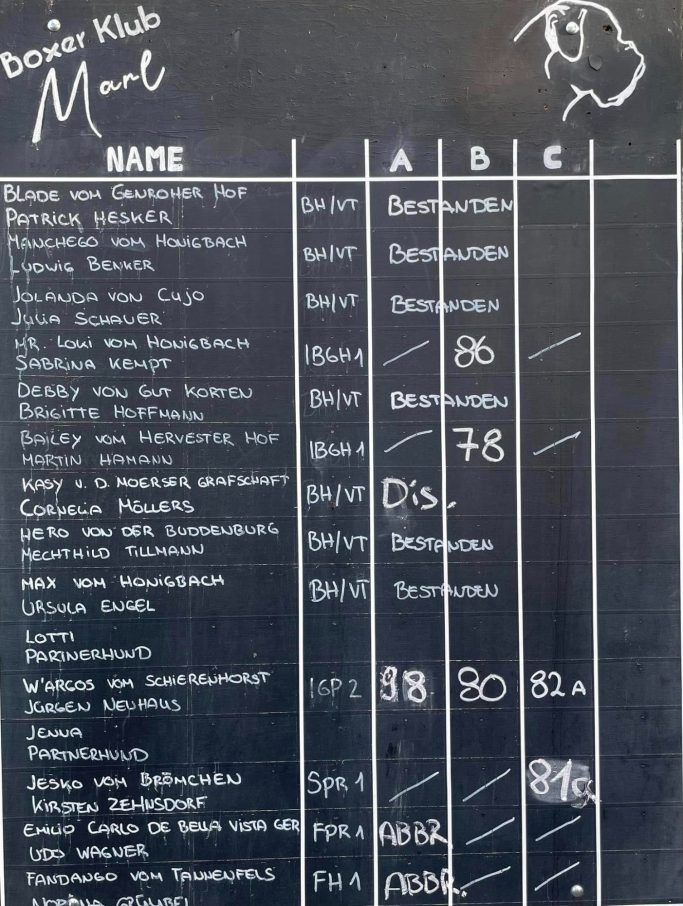 Boxer Klub
Marl
NAME A B C
BLADE VOM GENROHER HOF
PATRICK HESKER BH/VT BESTANDEN
MANCHEGO VOM HONIGBACH
LUDWIG BENKER BH/VT BESTANDEN
JOLANDA VON CUJO
JULIA SCHAUER BH/VT BESTANDEN
MR. LOUI VOM HONIGBACH
SABRINA KEMPT IBGH1 / 86 /
DEBBY VON GUT KORTEN
BRIGITTE HOFFMANN BH/VT BESTANDEN
BAILEY VOM HERVESTER HOF
MARTIN HAMANN IBGH1 / 78 /
KASY V. D. MOERSER GRAFSCHAFT
CORNELIA MÖLLERS BH/VT Dis.
HERO VON DER BUDDENBURG
MECHTHILD TILLMANN BH/VT BESTANDEN
MAX VOM HONIGBACH
URSULA ENGEL BH/VT BESTANDEN
LOTTI
PARTNERHUND
W'ARGOS VOM SCHIERENHORST
JÜRGEN NEUHAUS IGP 2 98 80 82 A
JENNA
PARTNERHUND
JESKO VOM BRÖMCHEN
KIRSTEN ZEHNSDORF SPR 1 / / 81a
EMILIO CARLO DE BELLA VISTA GER
UDO WAGNER FPR1 ABBR. / /
FANDANGO VOM TANNENFELS
FH 1 ABBR. / /